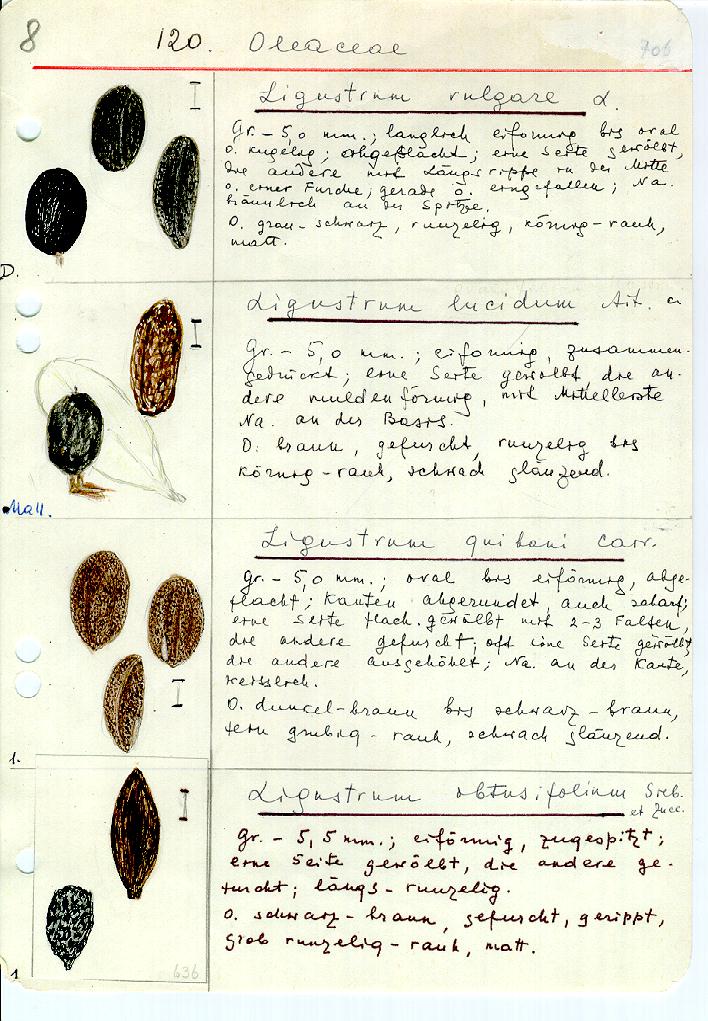 8
120. Oleaceae
706
Ligustrum vulgare L.
Gr. - 5,0 mm.; länglich eiförmig bis oval
o. kugelig; abgeflacht; eine Seite gewölbt,
die andere mit Längsrippe in der Mitte
o. einer Furche; gerade o. eingefallen; Na.
bräunlich an der Spitze.
O. grau-schwarz, runzelig, körnig-rauh,
matt.
D.
Ligustrum lucidum Ait.
Gr. - 5,0 mm.; eiförmig, zusammen-
gedrückt; eine Seite gewölbt, die an-
dere muldenförmig, mit Mittelleiste
Na. an der Basis.
O. braun, gefurcht, runzelig bis
körnig-rauh, schwach glänzend.
Mall.
Ligustrum quihoui carr.
Gr. - 5,0 mm.; oval bis eiförmig, abge-
flacht; Kanten abgerundet, auch scharf;
eine Seite flach gewölbt mit 2-3 Falten,
die andere gefurcht; oft eine Seite gewölbt,
die andere ausgehöhlt; Na. an der Kante,
weisslich.
O. dunkel-braun bis schwarz-braun,
fein grubig-rauh, schwach glänzend.
1.
Ligustrum obtusifolium Sieb.
et Zucc.
Gr. - 5,5 mm.; eiförmig, zugespitzt;
eine Seite gewölbt, die andere ge-
furcht; längs-runzelig.
O. schwarz-braun, gefurcht, gerippt,
grob runzelig-rauh, matt.
636
1